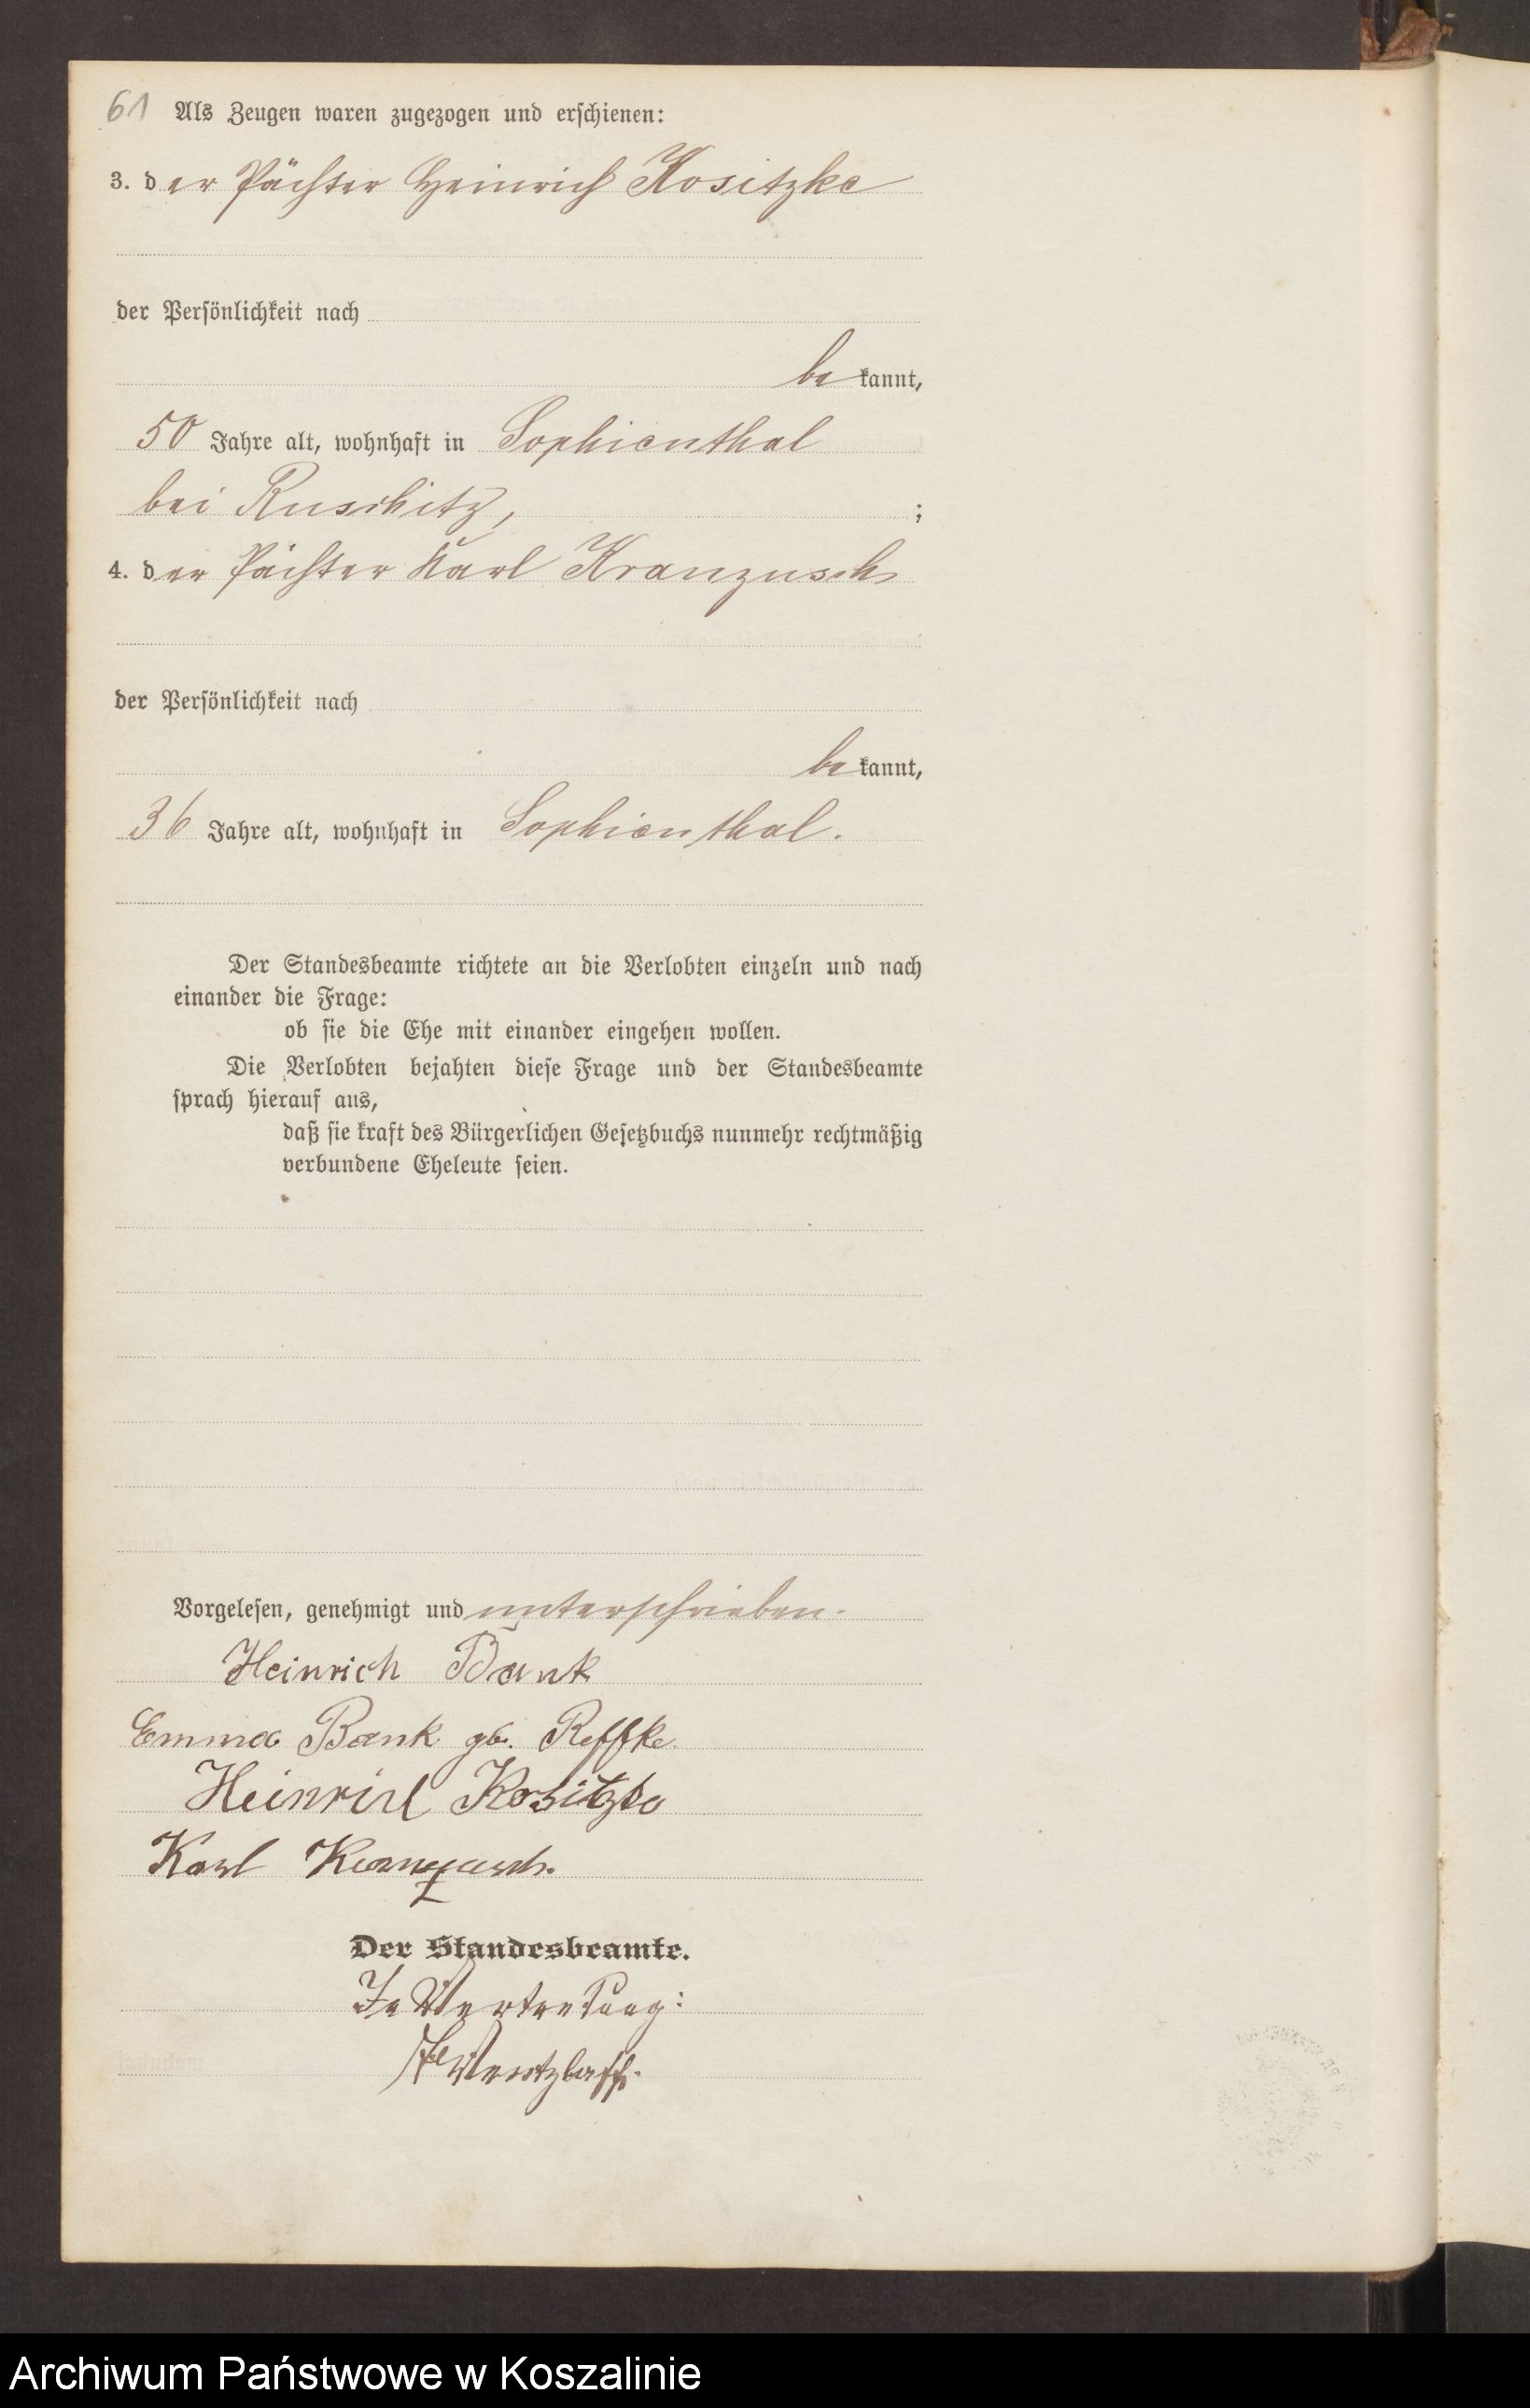 61 Als Zeugen waren zugezogen und erschienen:
3. der Pächter Heinrich Kositzke
der Persönlichkeit nach
bekannt,
50 Jahre alt, wohnhaft in Sophienthal
bei Ruschitz, ;
4. der Pächter Karl Kranzusch
der Persönlichkeit nach
bekannt,
36 Jahre alt, wohnhaft in Sophienthal.
Der Standesbeamte richtete an die Verlobten einzeln und nach
einander die Frage:
ob sie die Ehe mit einander eingehen wollen.
Die Verlobten bejahten diese Frage und der Standesbeamte
sprach hierauf aus,
daß sie kraft des Bürgerlichen Gesetzbuchs nunmehr rechtmäßig
verbundene Eheleute seien.
Vorgelesen, genehmigt und unterschrieben.
Heinrich Bank
Emma Bank gb. Reffke
Heinrich Kositzke
Karl Kranzusch.
Der Standesbeamte.
In Vertretung:
Wentzlaff.
Archiwum Państwowe w Koszalinie